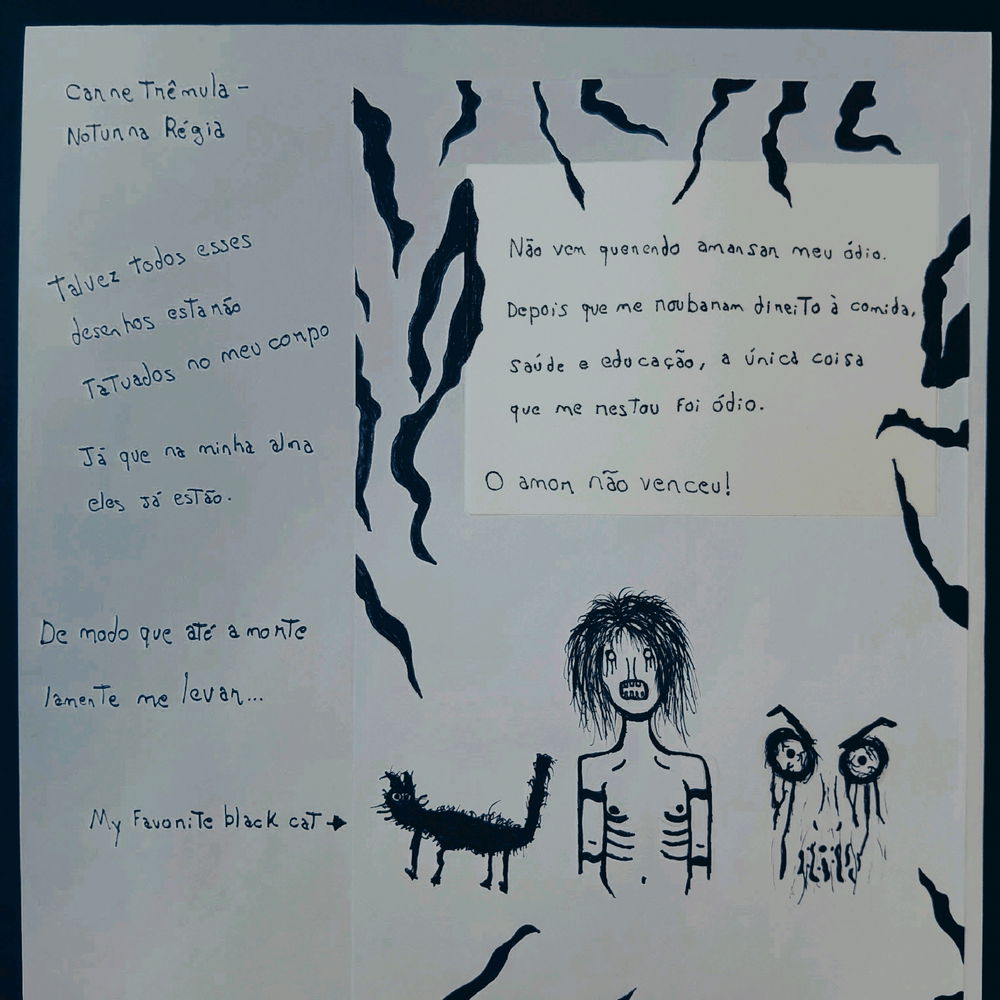 Carne Trêmula -
Noturna Régia
Talvez todos esses
desenhos estarão
Tatuados no meu corpo
Já que na minha alma
eles já estão.
De modo que até a morte
lamente me levar...
My Favorite black cat →
Não vem querendo amansar meu ódio.
Depois que me roubaram direito à comida,
saúde e educação, a única coisa
que me restou foi ódio.
O amor não venceu!